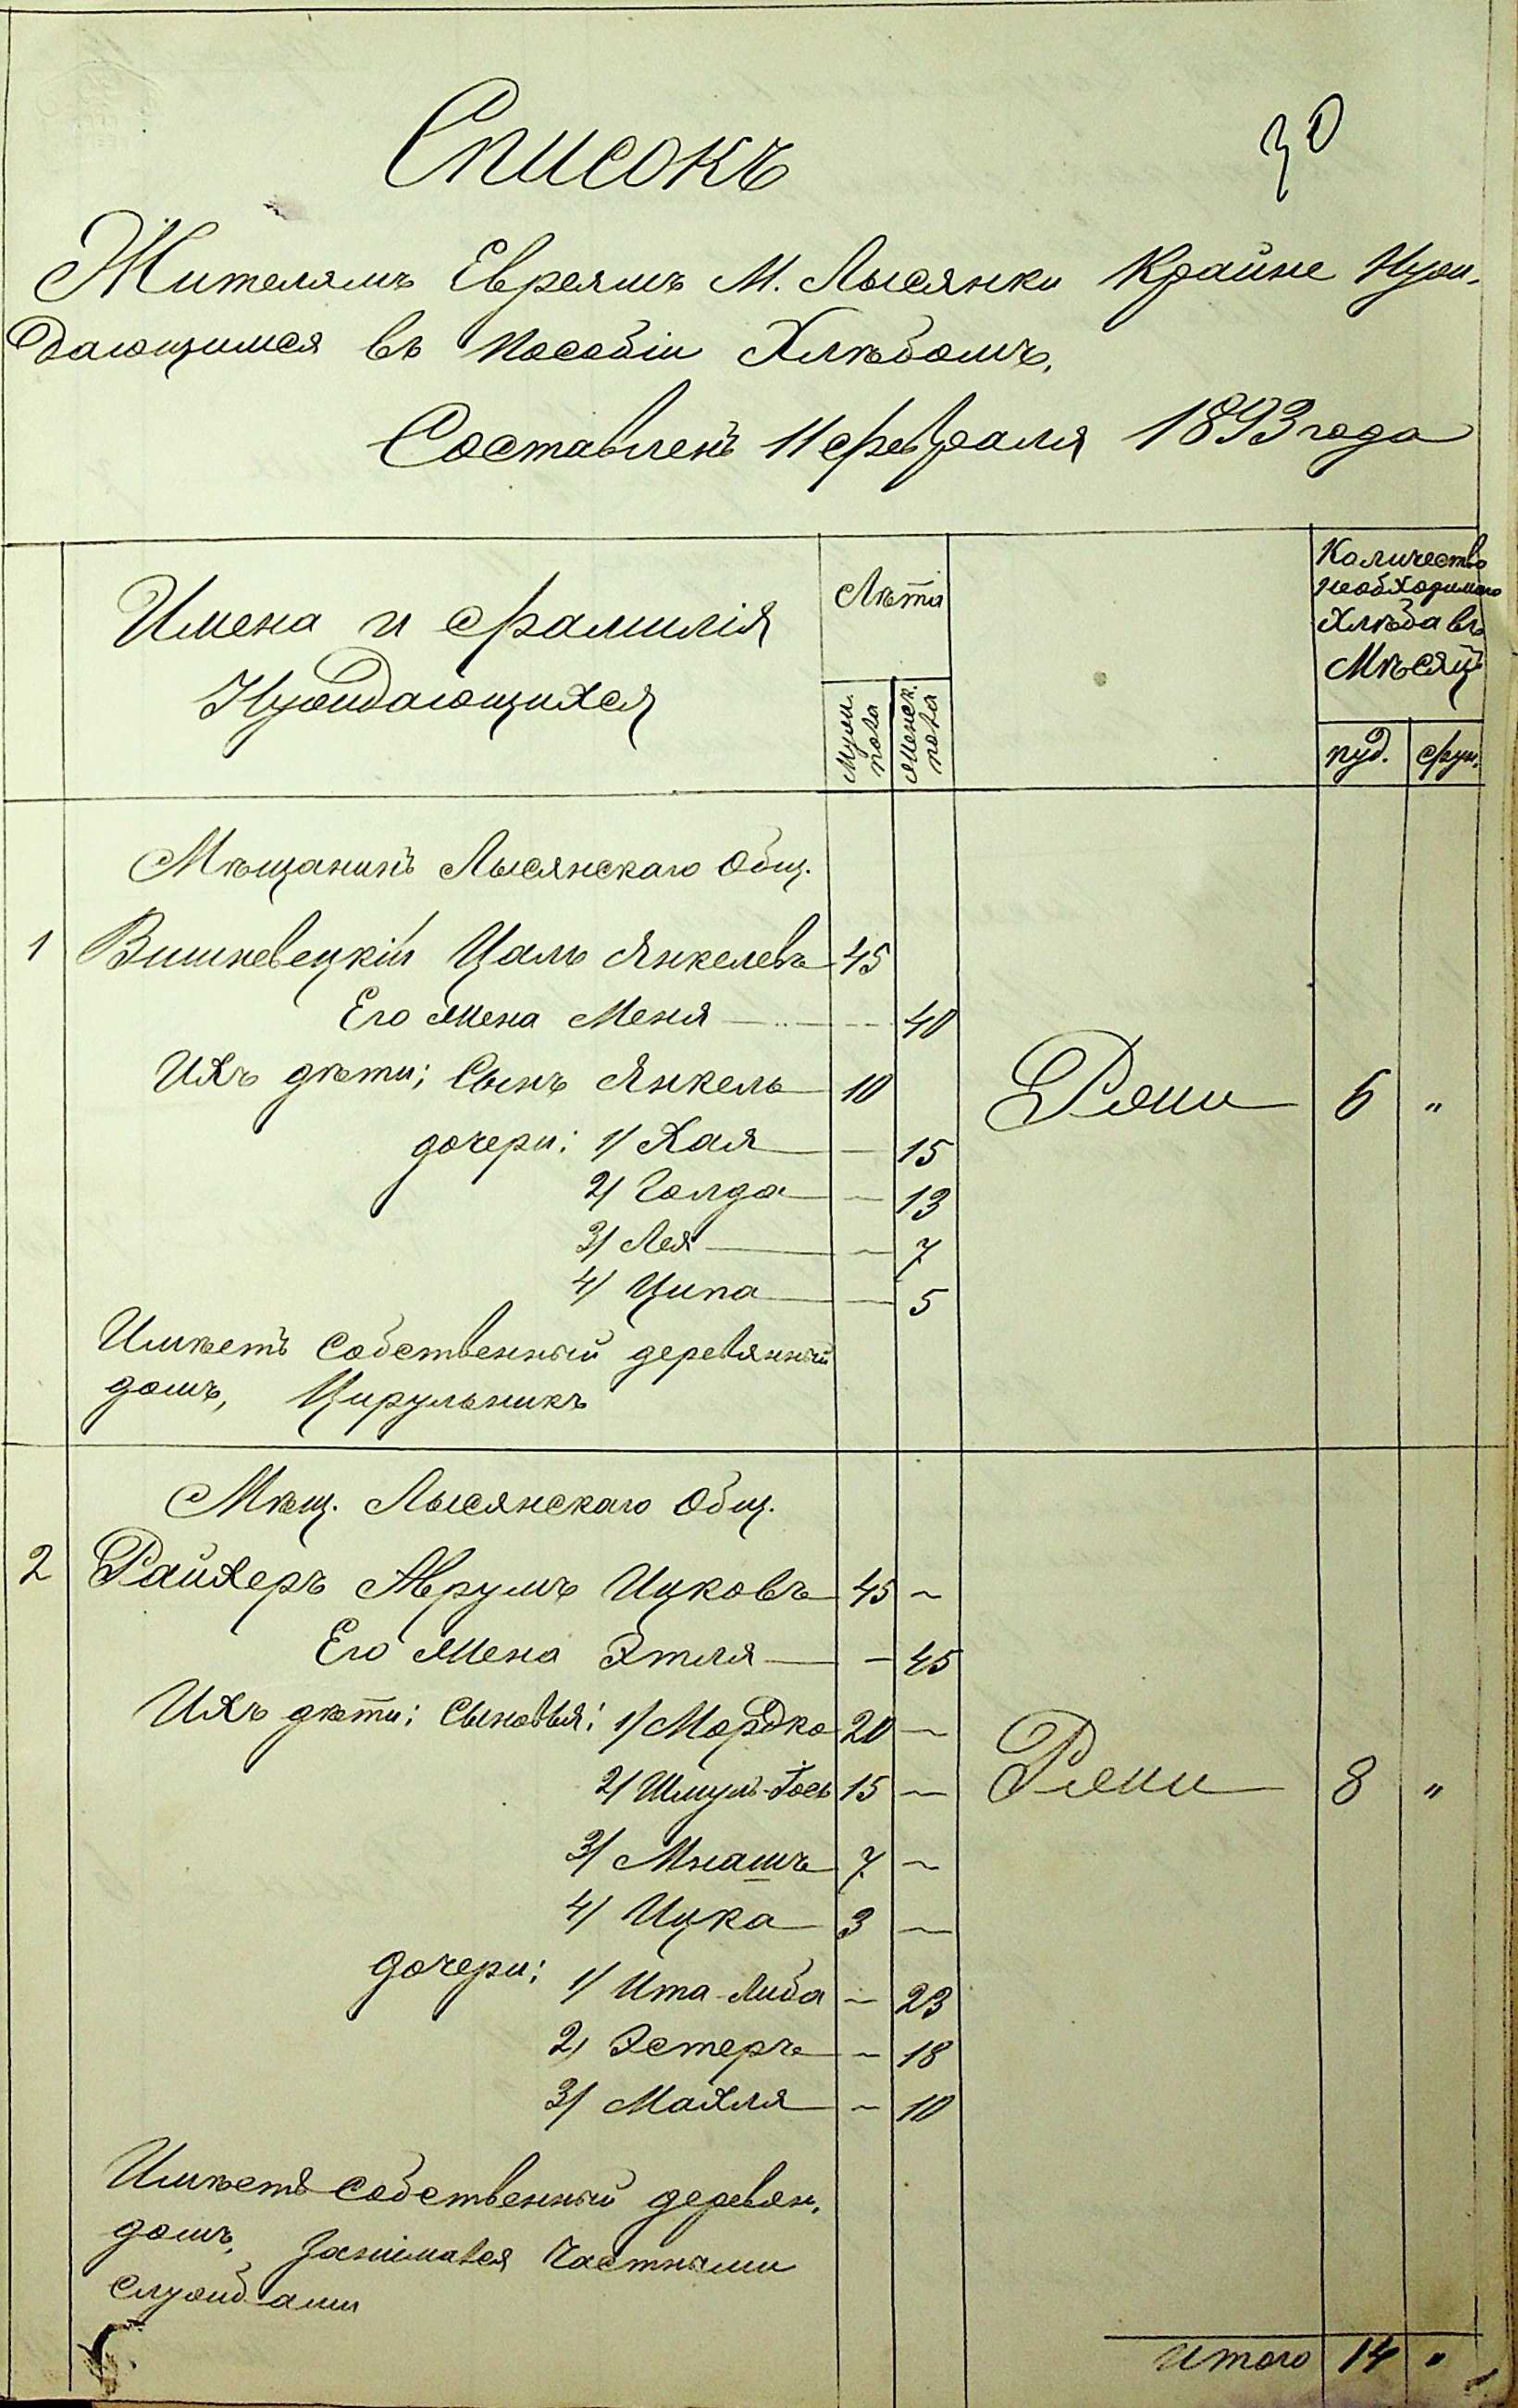 Списокъ
30
Жителямъ Евреямъ М. Лысянки Крайне Нуж-
дающимся въ Пособіи Хлѣбомъ,
Составленъ 11 февраля 1893 года
Имена и фамилія
Нуждающихся
Лѣта
Муж.
пола
Женск.
пола
Количество
необходимаго
Хлѣба въ
Мѣсяцъ
пуд.
фун.
Мѣщанинъ Лысянскаго Общ.
1 Вишневецкій Цаль Янкелевъ 45
Его жена Меня — 40
Ихъ дѣти; Сынъ Янкель 10 Ржи 6 "
дочери: 1/ Хая — 15
2/ Голда — 13
3/ Лея — 7
4/ Ципа — 5
Имѣетъ Собственный деревянный
домъ, Цирульникъ
Мѣщ. Лысянскаго Общ.
2 Райхеръ Аврумъ Ицковъ 45 —
Его жена Этля — 45
Ихъ дѣти: Сыновья: 1/ Мордко 20 —
2/ Шмуль-Іось 15 — Ржи 8 "
3/ Мнашъ 7 —
4/ Ицка 3 —
дочери: 1/ Ита-Либа — 23
2/ Эстеръ — 18
3/ Махля — 10
Имѣетъ Собственный деревян.
домъ, Занимался Частными
Службами
Итого 14 "